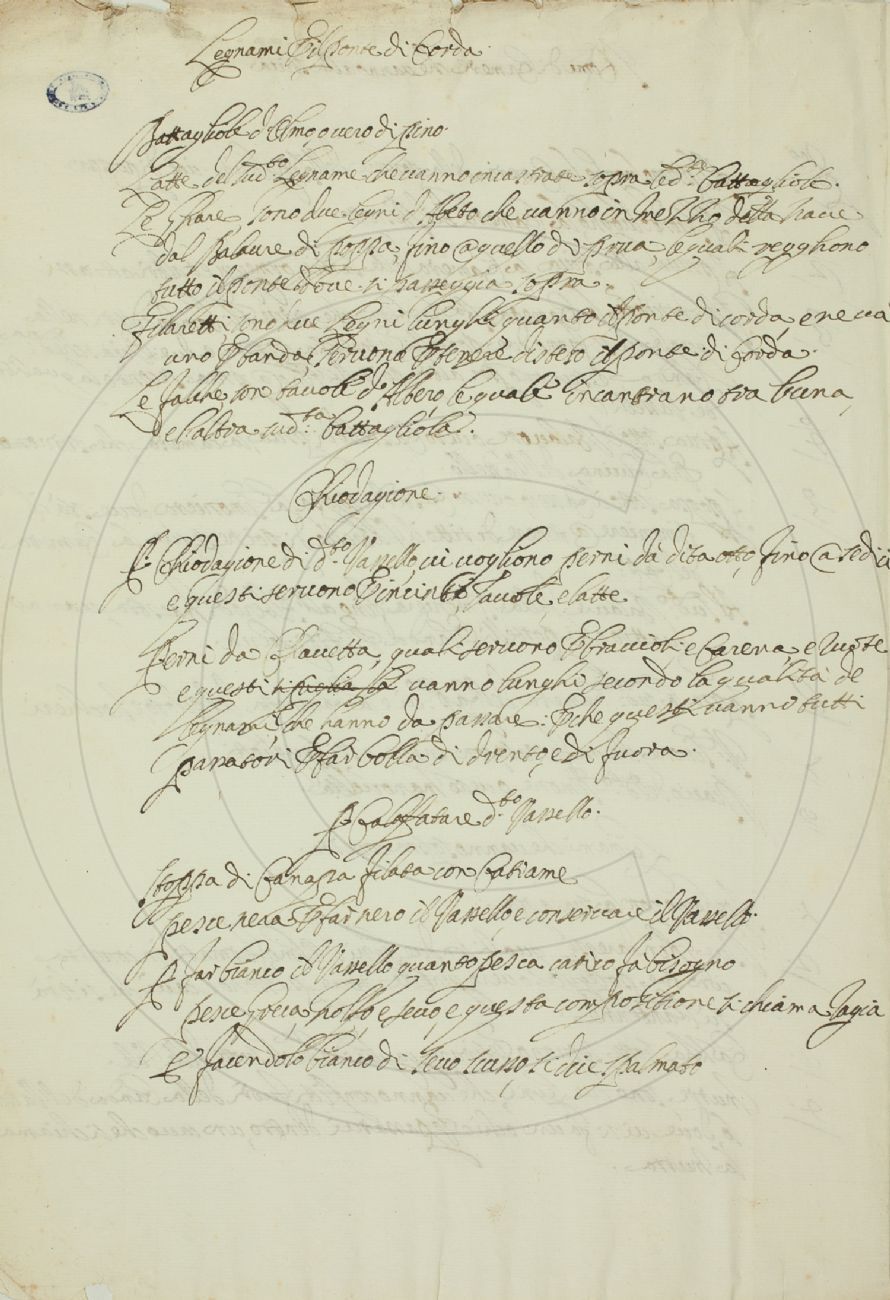 Legnami P il Ponte di Corda.
Battagliole d'Olmo, overo di pino.
Latte del sud.to Legname che vanno incastrate sopra le d.te battagliole.
Le sono due Legni d'Abeto che vanno in mezzo della nave
dal Baluare di poppa, fino a quello di prua, le quali regghono
tutto il ponte dove si passeggia sopra.
Filaretti sono due Legni lunghi quanto il ponte di corda, e ne va
uno P banda, servono P tenere disteso il ponte di Corda.
Le falche son tavole d'Albero, le quali incantrano tra l'una,
e l'altra sud.ta battagliola.
Chiodagione.
P. Chiodagione di d.to Vassello, vi vogliono perni da dita otto, fino a sedici
e questi servono P incinte, Tavole, e latte
Perni da Chiavetta, quali servono P braccioli e Carena, e ruote
e questi vanno lunghi secondo la qualità de
legnami che hanno da passare. P che questi vanno tutti
passatori P far bolla di drento, e di fuora.
P Calafatare d.to Vassello.
Stoppa di Canapa filata con Catrame
pesce nera P far nero il Vassello, e conservare il Vassello.
P far bianco il Vassello quanto pesca carico fa bisogno
pesce greca, e sevo e questa compositione si chiama
P facendolo bianco di sevo si dice spalmato